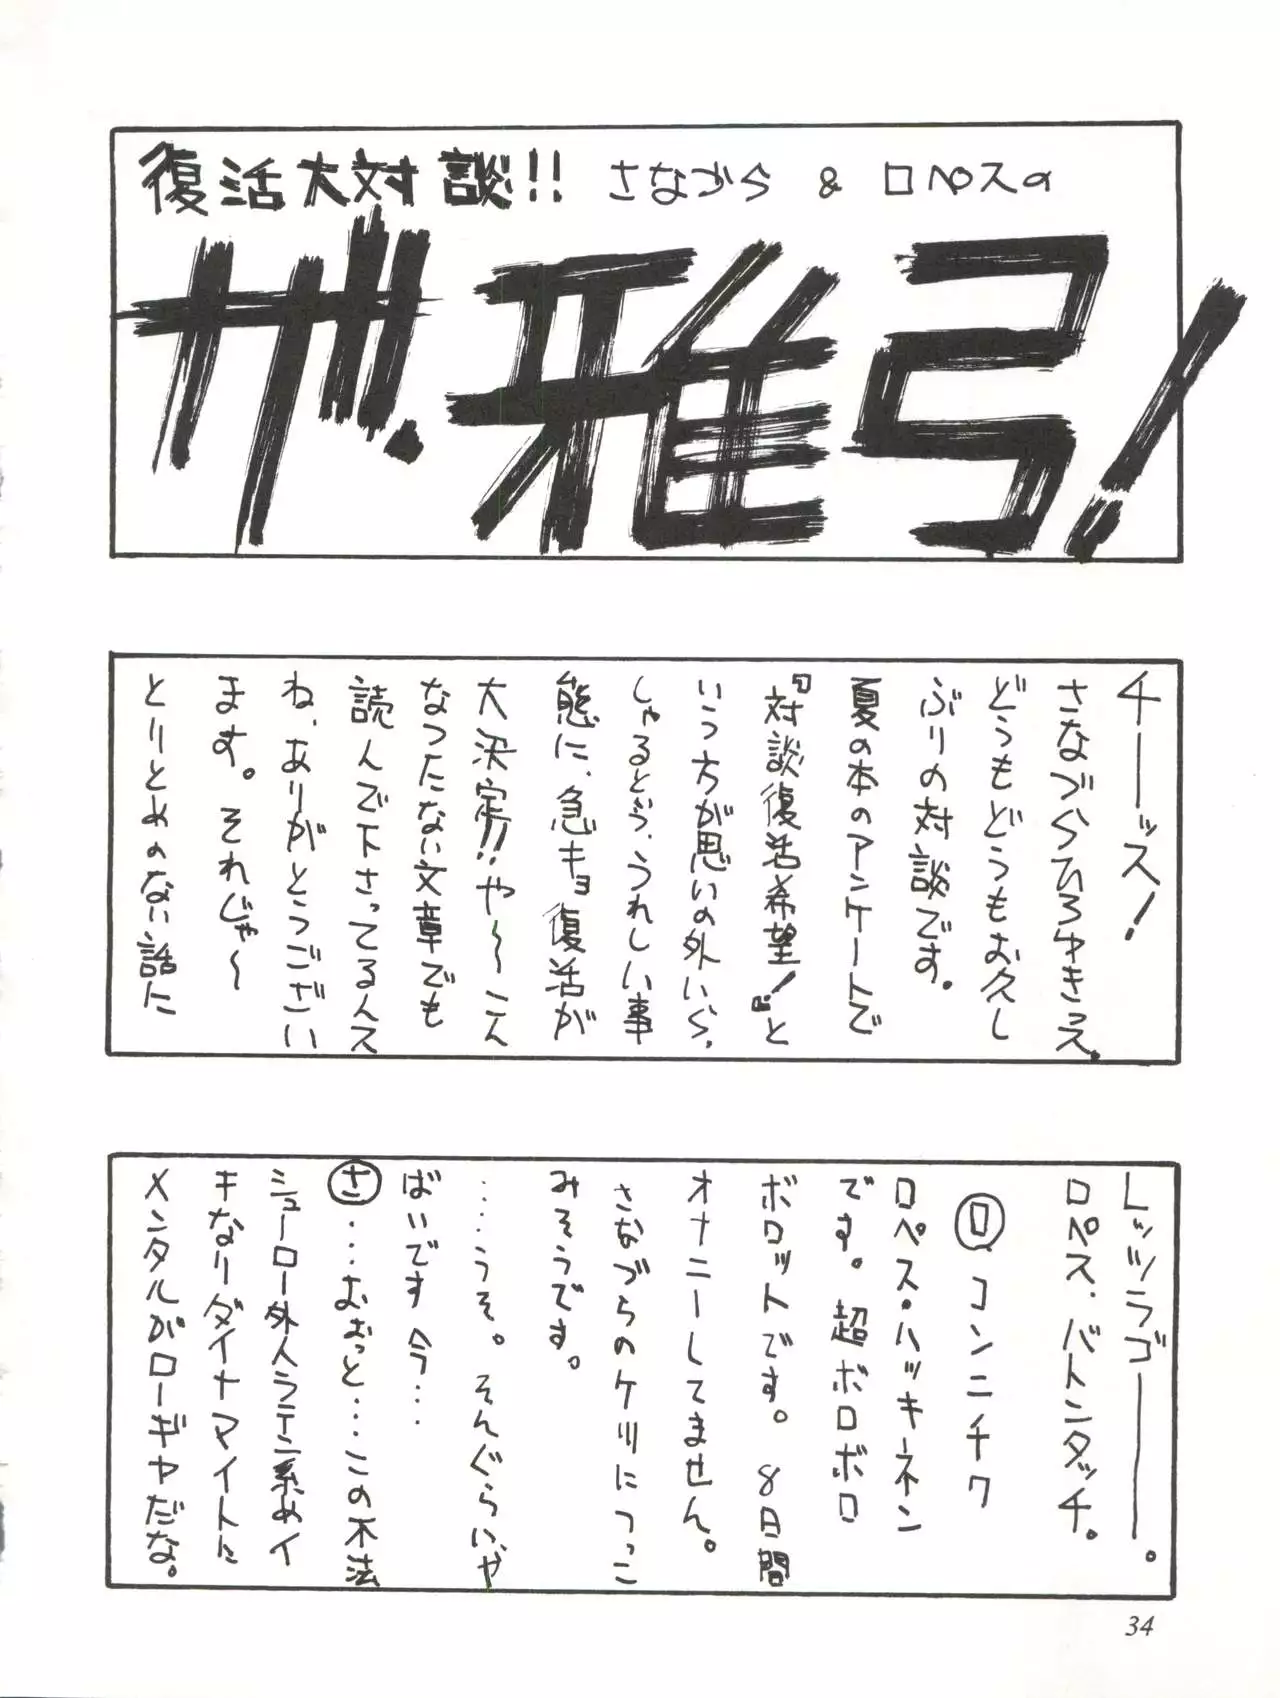 復活大対談!! さながら & ロペスの
ザ・雅弓!
チーーッス!
さなづらひろゆきっス。
どうもどうもお久し
ぶりの対談です。
夏の本のアンケートで
『対談復活希望!』と
いう方が思いの外いら、
しゃるという、うれしい事
態に、急キョ復活が
大決定!!や〜〜こん
なつたない文章でも
読んで下さってるんス
ね、ありがとうござい
ます。それじゃ〜
とりとめのない話に
レッツラゴーーー。
ロペス、バトンタッチ。
ロ コンニチワ
ロペス・ハッキーネン
です。超ボロボロ
ボロットです。8日間
オナニーしてません。
さなづらのケツにつっこ
みそうです。
‥‥うそ。そんぐらい、や
ばいです今‥‥
さ‥‥おぉっと‥‥この不法
ミューロー外人ラテン系めイ
キなりダイナマイトに
メンタルがローギヤだな。
34